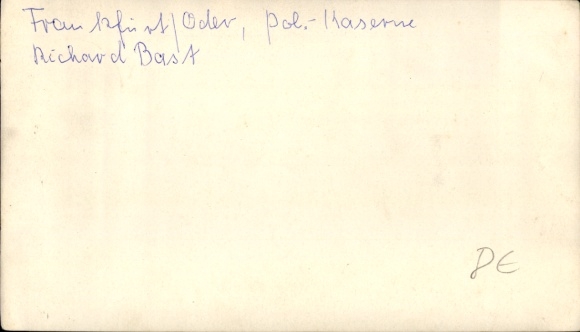 Frankfurt/Oder, Pol.-Kaserne
Richard Bast
DE